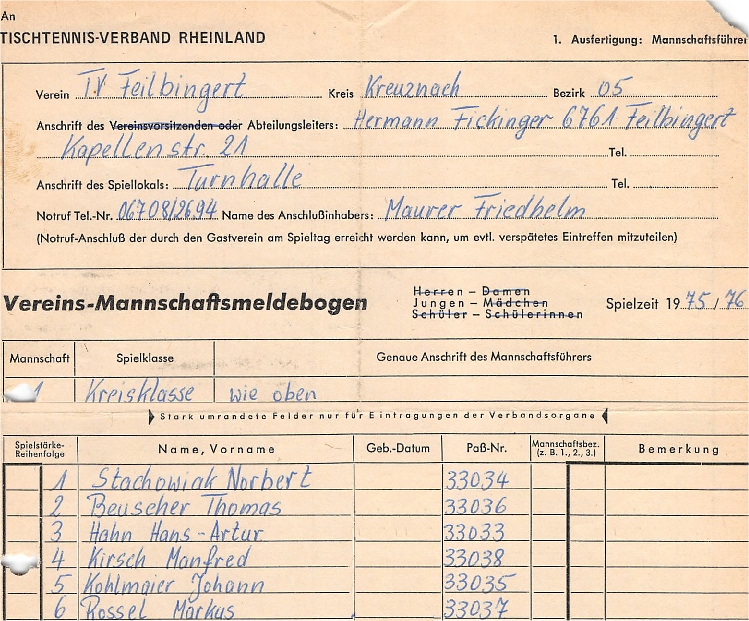 An
TISCHTENNIS-VERBAND RHEINLAND
1. Ausfertigung: Mannschaftsführer
Verein T.V Feilbingert Kreis Kreuznach Bezirk 05
Anschrift des Vereinsvorsitzenden oder Abteilungsleiters: Hermann Fickinger 6761 Feilbingert
Kapellenstr. 21 Tel.
Anschrift des Spiellokals: Turnhalle Tel.
Notruf Tel.-Nr. 06708/2694 Name des Anschlußinhabers: Maurer Friedhelm
(Notruf-Anschluß der durch den Gastverein am Spieltag erreicht werden kann, um evtl. verspätetes Eintreffen mitzuteilen)
Vereins-Mannschaftsmeldebogen
Herren – Damen
Jungen – Mädchen
Schüler – Schülerinnen
Spielzeit 1975/76
Mannschaft Spielklasse Genaue Anschrift des Mannschaftsführers
1 Kreisklasse wie oben
Stark umrandete Felder nur für Eintragungen der Verbandsorgane
Spielstärke-Reihenfolge Name, Vorname Geb.-Datum Paß-Nr. Mannschaftsbez. (z. B. 1., 2., 3.) Bemerkung
1 Stachowiak Norbert 33034
2 Beuscher Thomas 33036
3 Hahn Hans-Artur 33033
4 Kirsch Manfred 33038
5 Kohlmaier Johann 33035
6 Rossel Markus 33037